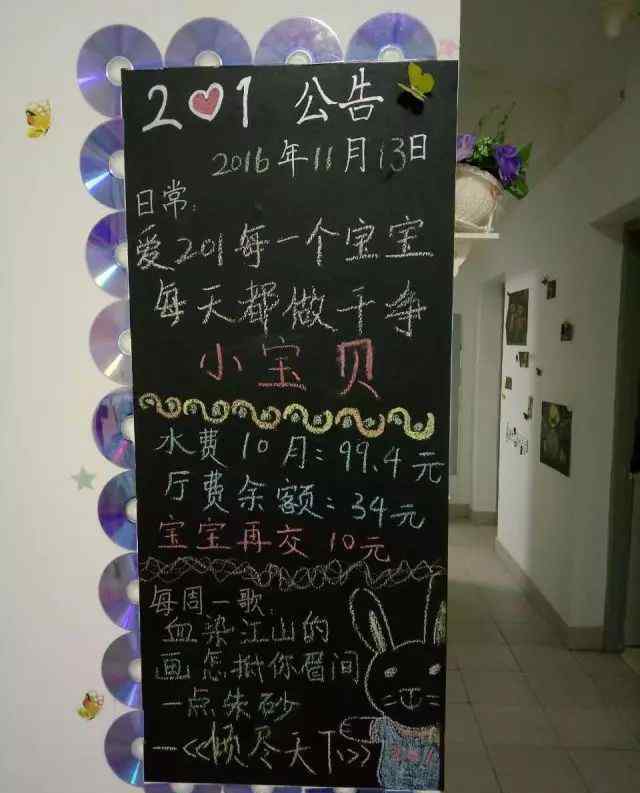 2❤1 公告
2016年11月13日
日常:
爱201每一个宝宝
每天都做干净
小宝贝
水费10月:99.4元
厅费余额:34元
宝宝再交10元
每周一歌:
血染江山的
画怎敌你眉间
一点朱砂
—<<倾尽天下>>
201